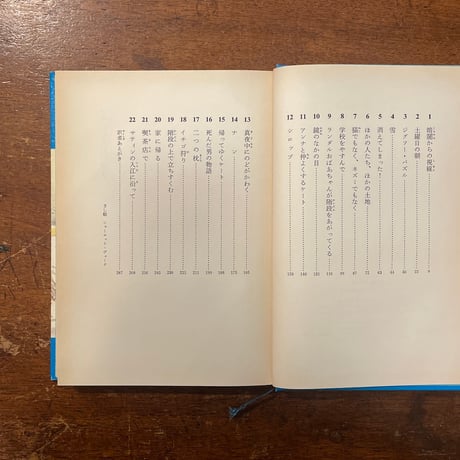 1 暗闇からの視線 9
2 土曜日の朝
3 ジグソー・パズル
4 雪
5 消えてしまった!
6 ほかの人たち、ほかの土地
7 猫でもなく、ネズミでもなく
8 学校をやすんで
9 ランダルおばあちゃんが階段をあがってくる
10 鏡のなかの目
11 アンナと仲よくするケート
12 シロップ
13 真夜中にのどがかわく
14 ナン
15 帰ってゆくケート
16 死んだ男の物語
17 二つの枕
18 イチゴ狩り
19 階段の上で立ちすくむ
20 家に帰る
21 喫茶店で
22 サティンの入江に沿って
訳者あとがき
さし絵 シャーロット・ヴォーク